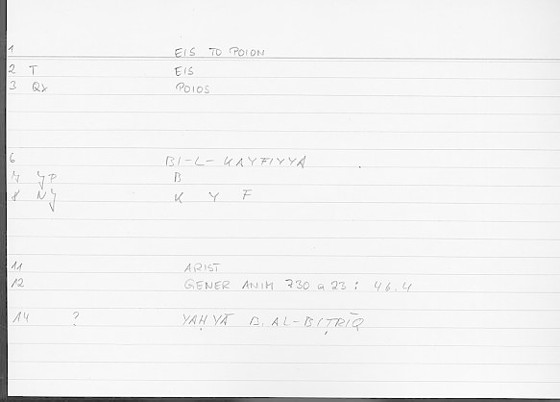 1 EIS TO POION
2 T EIS
3 Qx POIOS
6 BI-L-KAYFIYYA
7 YF B
8 NY K Y F
11 ARIST
12 GENER ANIM 730 a 23 : 46.4
14 ? YAḤYĀ B. AL-BIṬRĪQ